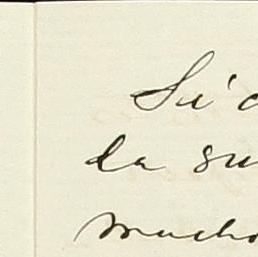 Si c
da su
mucho